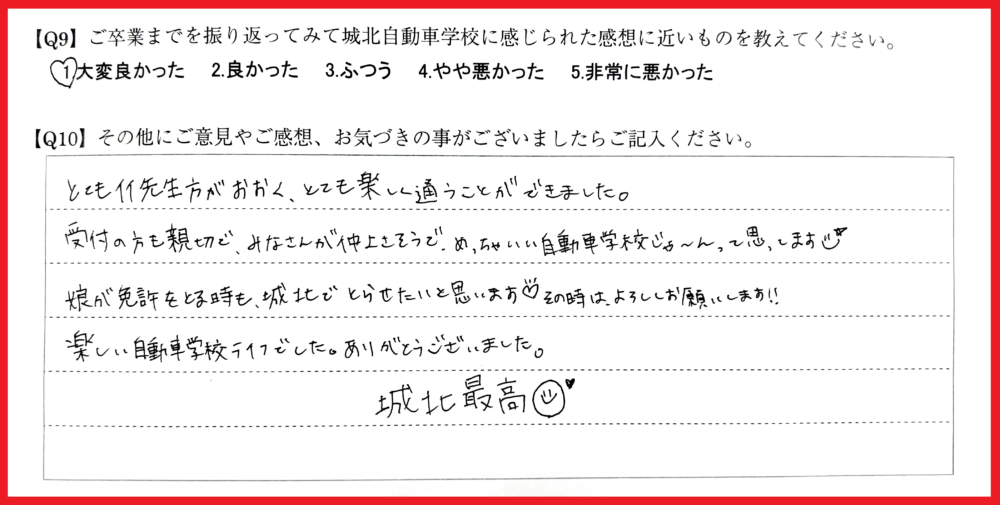 【Q9】ご卒業までを振り返ってみて城北自動車学校に感じられた感想に近いものを教えてください。
1大変良かった 2.良かった 3.ふつう 4.やや悪かった 5.非常に悪かった
【Q10】その他にご意見やご感想、お気づきの事がございましたらご記入ください。
とても 先生方がおおく、とても楽しく通うことができました。
受付の方も親切で、みなさんが仲よさそうで、めっちゃいい自動車学校じゃ〜んって思ってます
娘が免許をとる時も、城北でとらせたいと思います♡その時は、よろしくお願いします!!
楽しい自動車学校ライフでした。ありがとうございました。
城北最高☺♥